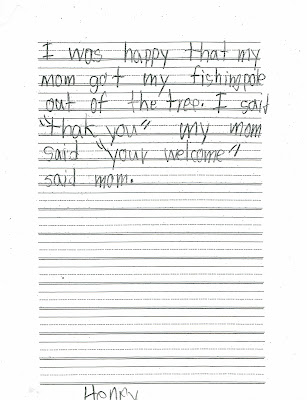 I was happy that my
mom got my fishingpole
out of the tree. I said
"thak you" my mom
said "your welcome"
said mom.
Henry